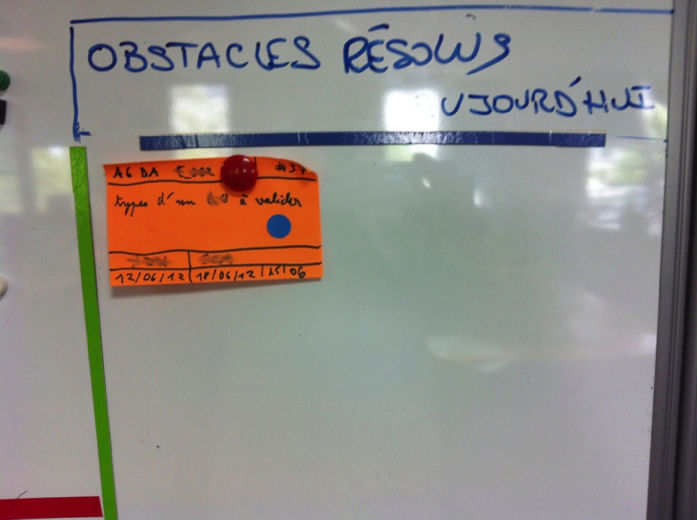 OBSTACLES RÉSOLUS
UJOURD'HUI
types d'un à valider
12/06/12 18/06/12